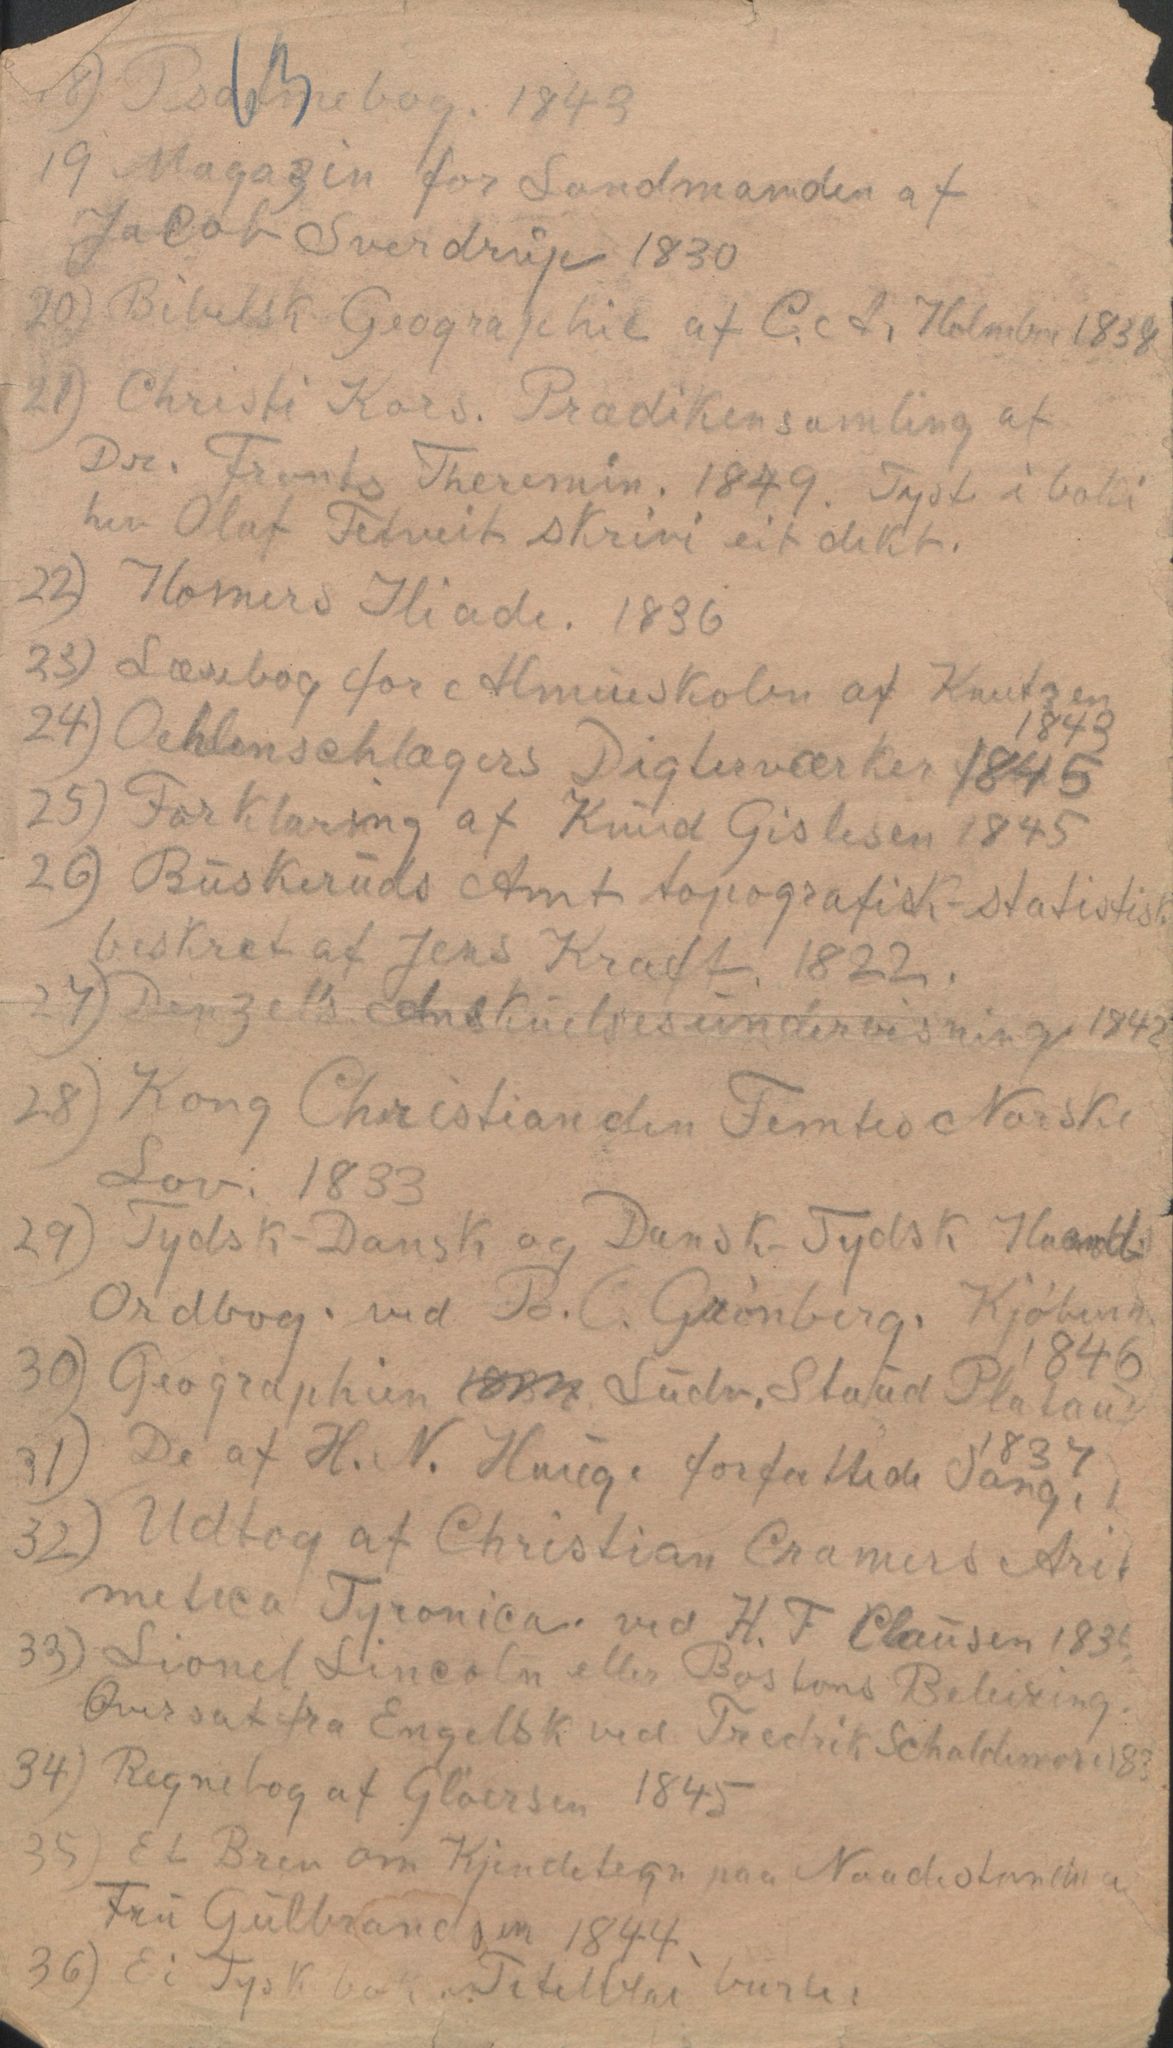 18) Psalmebog. 1843
19 Magazin for Landmanden af
Jacob Sverdrup 1830
20) Bibelsk Geographie af C. A. Holmboe 1838
21) Christi Kors. Prædikensamling af
Dr. Frants Theremin. 1849. Fyst i boki
hev Olaf Tetveit skrivi eit dikt.
22) Homers Iliade. 1836
23) Læsebog for Almueskolen af Knutzen
1843
24) Oehlenschlægers Digterværker 1845
25) Forklaring af Knud Gislesen 1845
26) Buskeruds Amt topografisk-statistisk
beskret af Jens Kraft. 1822.
27) Denzels Anskuelsesundervisning 1842
28) Kong Christian den Femtes Norske
Lov. 1833
29) Tydsk-Dansk og Dansk-Tydsk Haand-
Ordbog. ved B. C. Grönberg. Kjöbenh.
1846
30) Geographien Ludv. Stoud Platou
1837
31) De af H. N. Hauge forfattede Sange
32) Udtog af Christian Cramers Arit
metica Tyronica. ved H. F Clausen 183
33) Lionel Lincoln eller Bostons Beleiring.
Oversat fra Engelsk ved Fredrik Schaldemose 183
34) Regnebog af Glöersen 1845
35) Et Brev om Kjendetegn paa Naadestanden a
Fru Gulbrandsen 1844.
36) Ei Tysk bok. Titelblai burte